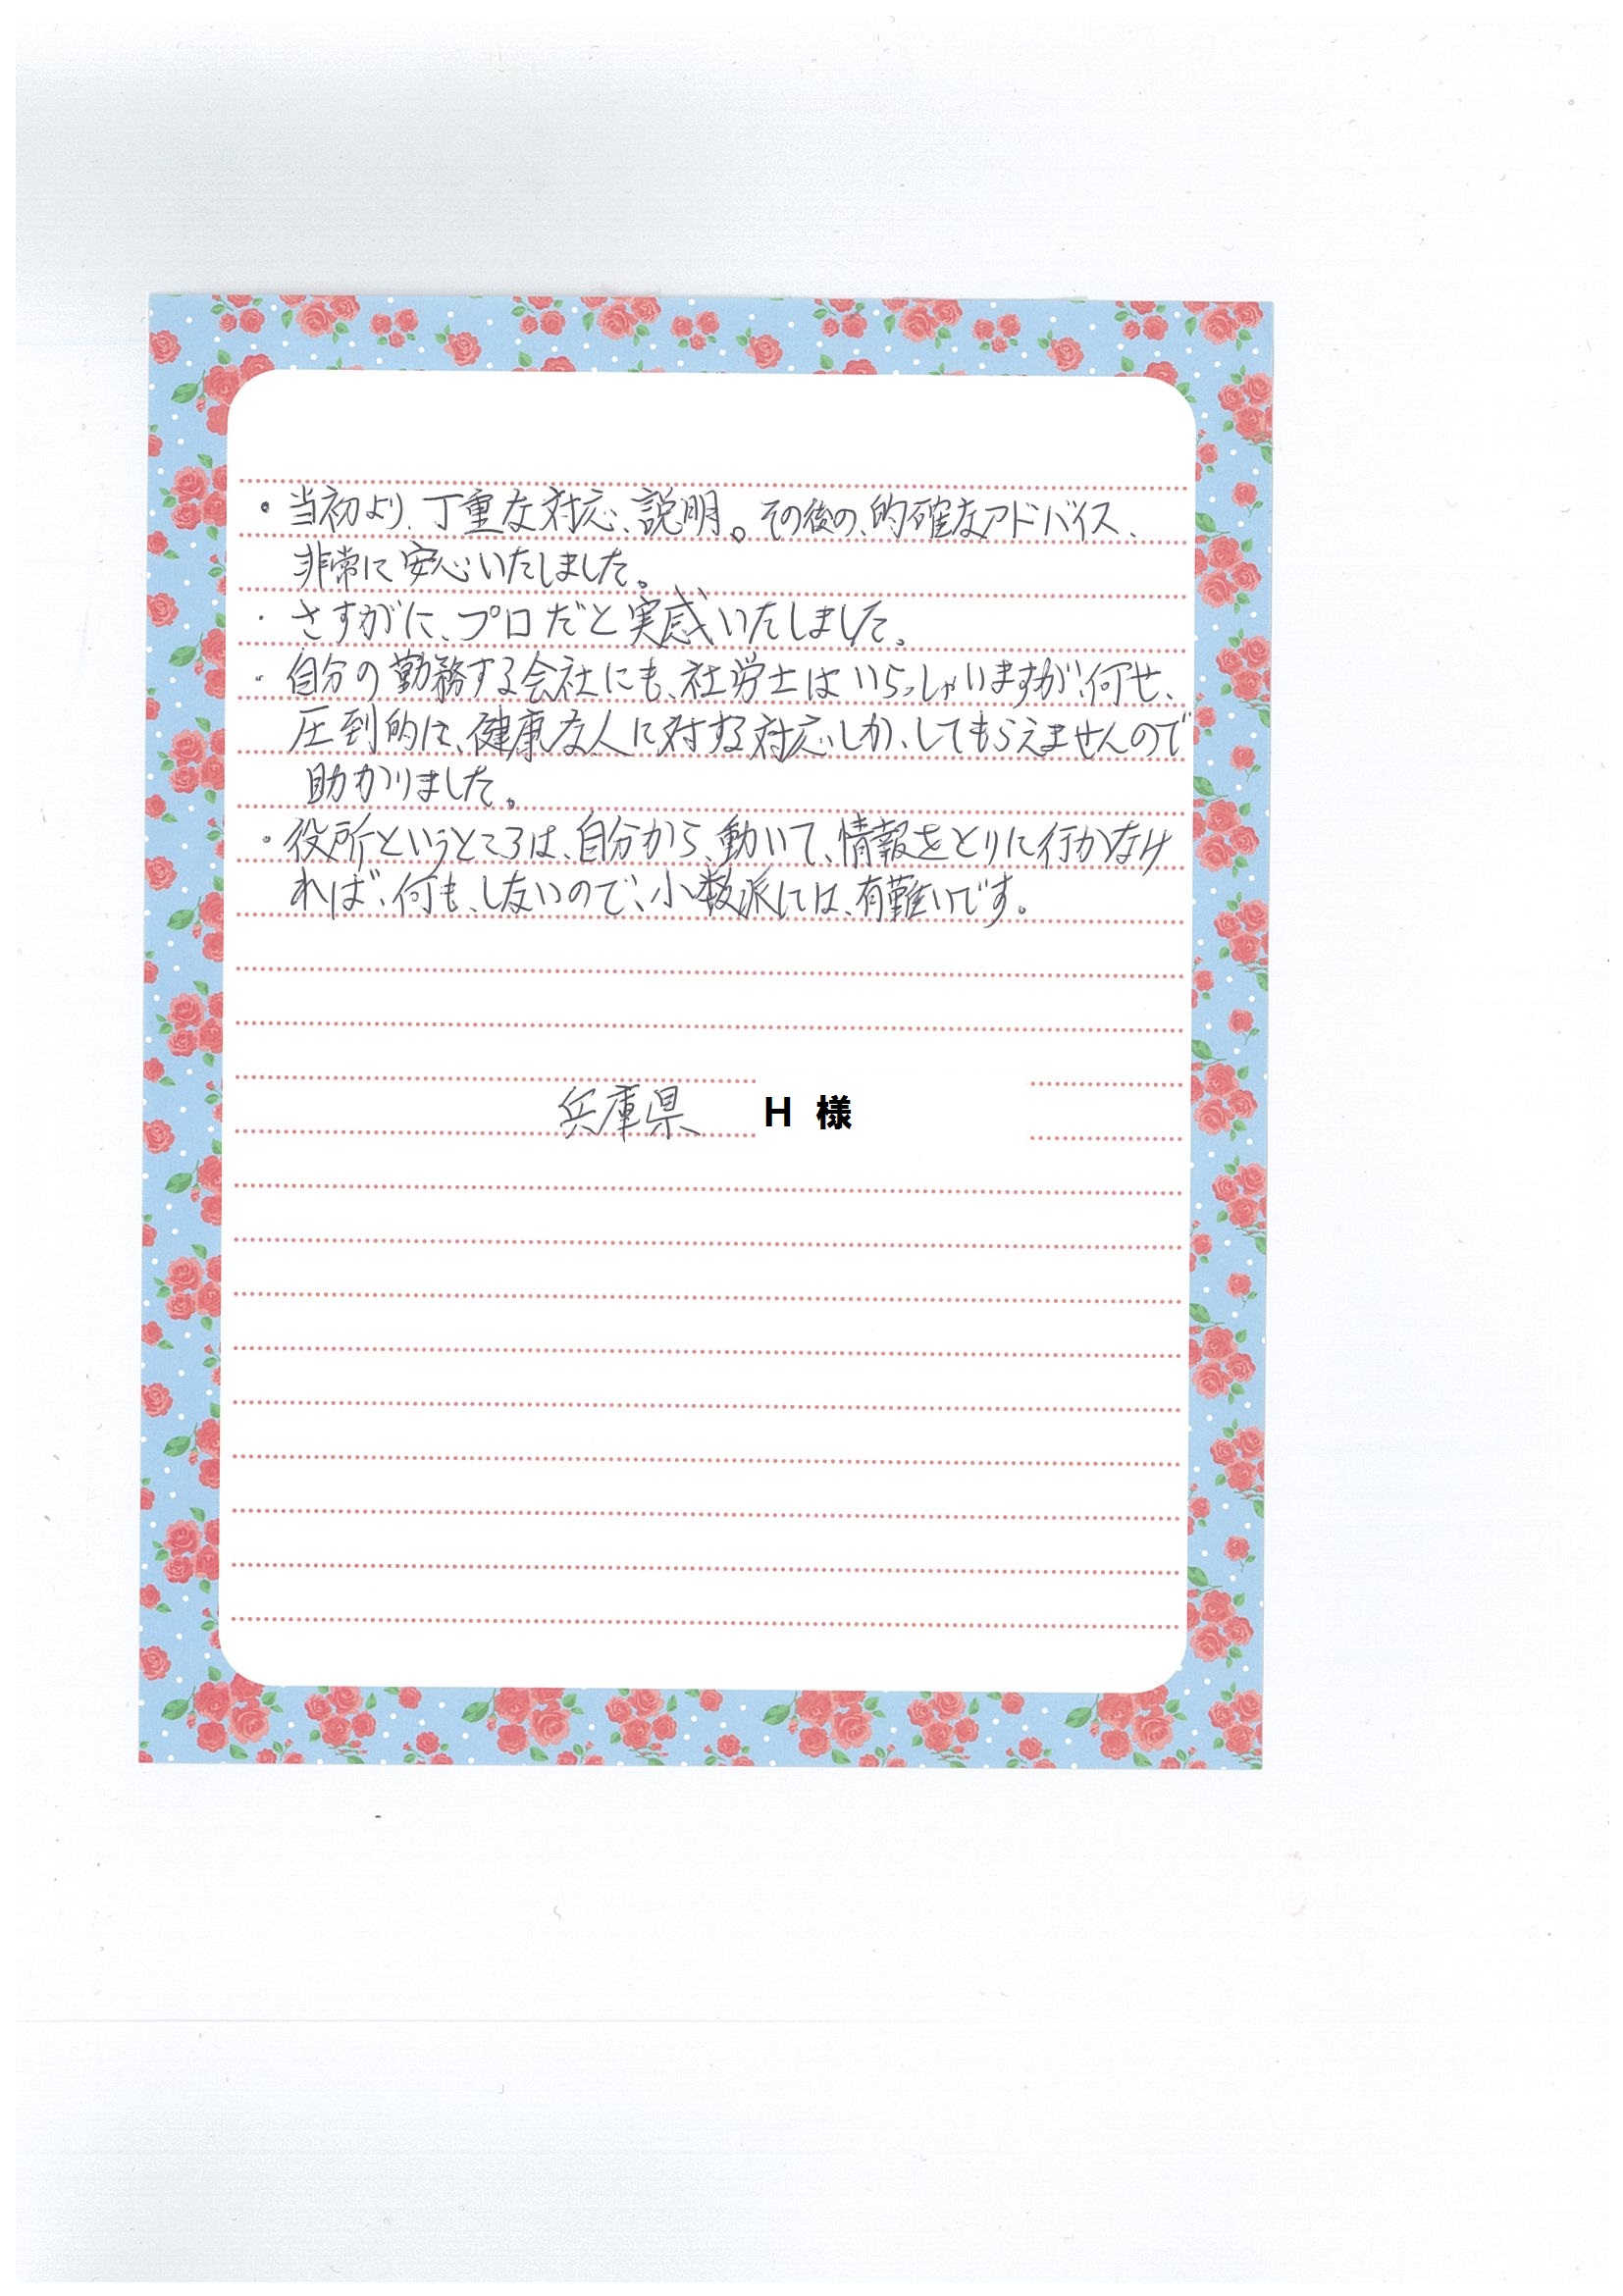 ・当初より、丁重な対応、説明。その後の、的確なアドバイス、
非常に安心いたしました。
・さすがに、プロだと実感いたしました。
・自分の勤務する会社にも、社労士はいらっしゃいますが、何せ、
圧到的に、健康な人に対する対応、しか、してもらえませんので
助かりました。
・役所というところは、自分から、動いて、情報をとりに行かなけ
れば、何も、しないので、小数派には、有難いです。
兵庫県 H 様